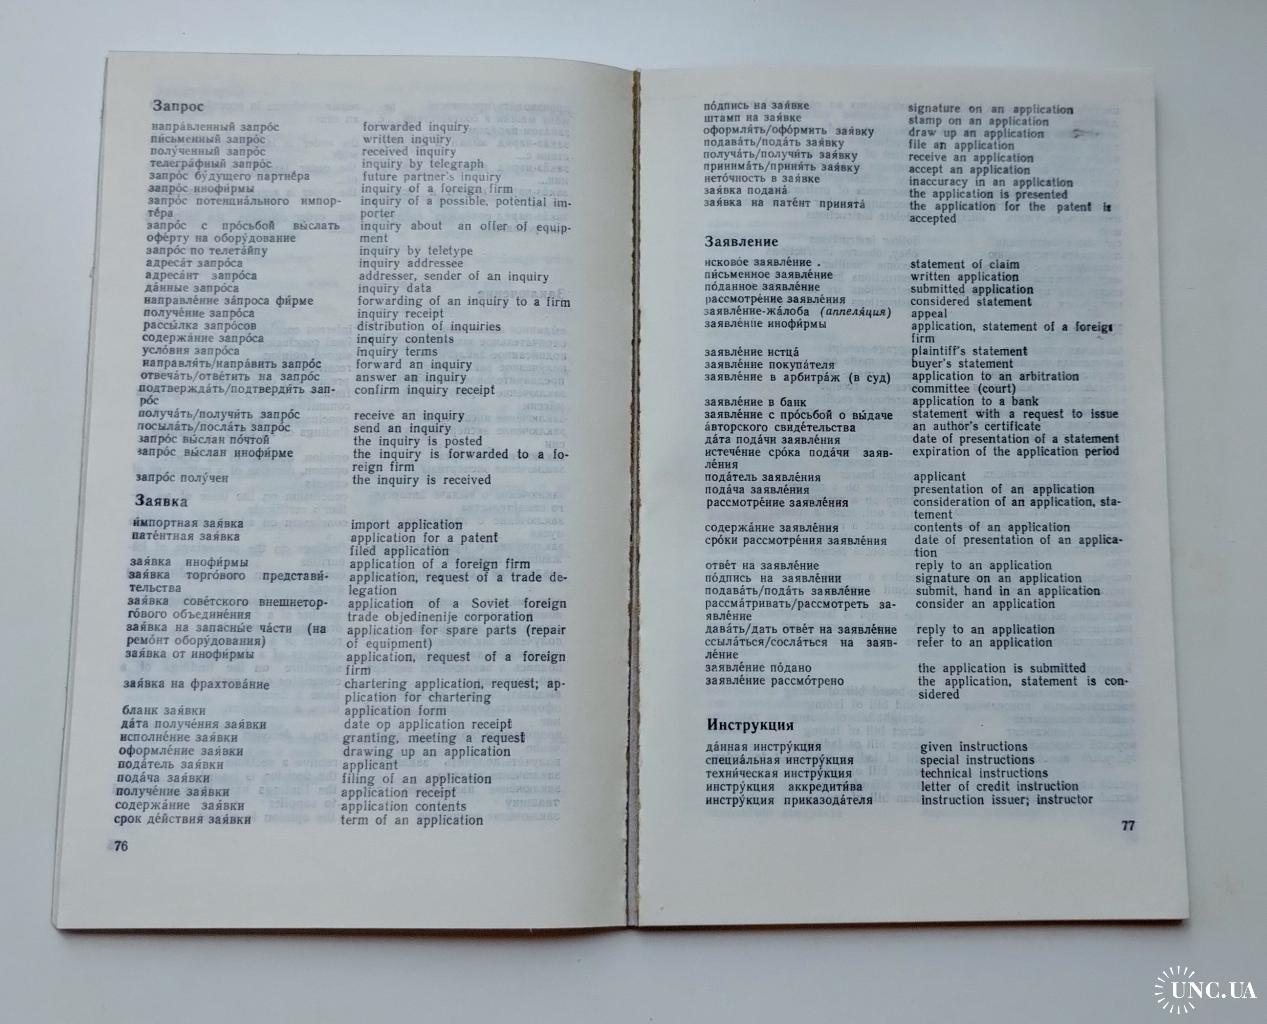 Запрос
напра́вленный запро́с forwarded inquiry
пи́сьменный запро́с written inquiry
полу́ченный запро́с received inquiry
телегра́фный запро́с inquiry by telegraph
запро́с бу́дущего партнёра future partner's inquiry
запро́с инофи́рмы inquiry of a foreign firm
запро́с потенциа́льного импор- inquiry of a possible, potential im-
тёра porter
запро́с с про́сьбой вы́слать inquiry about an offer of equip-
офе́рту на обору́дование ment
запро́с по телета́йпу inquiry by teletype
адреса́т запро́са inquiry addressee
адреса́нт запро́са addresser, sender of an inquiry
да́нные запро́са inquiry data
направле́ние за́проса фи́рме forwarding of an inquiry to a firm
получе́ние запро́са inquiry receipt
рассы́лка запро́сов distribution of inquiries
содержа́ние запро́са inquiry contents
усло́вия запро́са inquiry terms
направля́ть/напра́вить запро́с forward an inquiry
отвеча́ть/отве́тить на запро́с answer an inquiry
подтвержда́ть/подтверди́ть зап- confirm inquiry receipt
ро́с
получа́ть/получи́ть запро́с receive an inquiry
посыла́ть/посла́ть запро́с send an inquiry
запро́с вы́слан по́чтой the inquiry is posted
запро́с вы́слан инофи́рме the inquiry is forwarded to a fo-
reign firm
запро́с полу́чен the inquiry is received
Заявка
и́мпортная зая́вка import application
пате́нтная зая́вка application for a patent
filed application
зая́вка инофи́рмы application of a foreign firm
зая́вка торго́вого представи́- application, request of a trade de-
тельства legation
зая́вка сове́тского внешнетор- application of a Soviet foreign
го́вого объедине́ния trade objedinenije corporation
зая́вка на запасны́е ча́сти (на application for spare parts (repair
ремо́нт обору́дования) of equipment)
зая́вка от инофи́рмы application, request of a foreign
firm
зая́вка на фрахтова́ние chartering application, request; ap-
plication for chartering
бланк зая́вки application form
да́та получе́ния зая́вки date op application receipt
исполне́ние зая́вки granting, meeting a request
оформле́ние зая́вки drawing up an application
пода́тель зая́вки applicant
пода́ча зая́вки filing of an application
получе́ние зая́вки application receipt
содержа́ние зая́вки application contents
срок де́йствия зая́вки term of an application
76
по́дпись на зая́вке signature on an application
штамп на зая́вке stamp on an application
оформля́ть/офо́рмить зая́вку draw up an application
подава́ть/пода́ть зая́вку file an application
получа́ть/получи́ть зая́вку receive an application
принима́ть/приня́ть зая́вку accept an application
нето́чность в зая́вке inaccuracy in an application
зая́вка подана́ the application is presented
зая́вка на пате́нт принята́ the application for the patent is
accepted
Заявление
исково́е заявле́ние statement of claim
пи́сьменное заявле́ние written application
по́данное заявле́ние submitted application
рассмотре́ние заявле́ния considered statement
заявле́ние-жа́лоба (апелля́ция) appeal
заявле́ние инофи́рмы application, statement of a foreign
firm
заявле́ние истца́ plaintiff's statement
заявле́ние покупа́теля buyer's statement
заявле́ние в арбитра́ж (в суд) application to an arbitration
committee (court)
заявле́ние в банк application to a bank
заявле́ние с про́сьбой о вы́даче statement with a request to issue
а́вторского свиде́тельства an author's certificate
да́та пода́чи заявле́ния date of presentation of a statement
истече́ние сро́ка пода́чи заяв- expiration of the application period
ле́ния
пода́тель заявле́ния applicant
пода́ча заявле́ния presentation of an application
рассмотре́ние заявле́ния consideration of an application, sta-
tement
содержа́ние заявле́ния contents of an application
сро́ки рассмотре́ния заявле́ния date of presentation of an applica-
tion
отве́т на заявле́ние reply to an application
по́дпись на заявле́нии signature on an application
подава́ть/пода́ть заявле́ние submit, hand in an application
рассма́тривать/рассмотре́ть за- consider an application
явле́ние
дава́ть/дать отве́т на заявле́ние reply to an application
ссыла́ться/сосла́ться на заяв- refer to an application
ле́ние
заявле́ние по́дано the application is submitted
заявле́ние рассмо́трено the application, statement is con-
sidered
Инструкция
да́нная инстру́кция given instructions
специа́льная инстру́кция special instructions
техни́ческая инстру́кция technical instructions
инстру́кция аккредити́ва letter of credit instruction
инстру́кция приказода́теля instruction issuer; instructor
77
UNC.UA